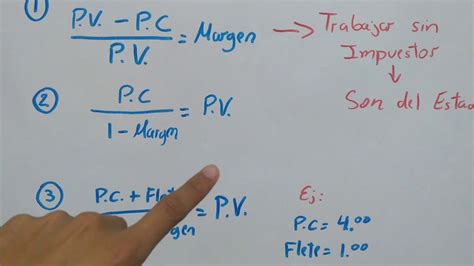 ①
P.V. - P.C
P.V. = Margen → Trabajar sin
Impuestos
↓
Son del Esta
②
P.C
1 - Margen = P.V.
③
P.C. + Flete
= P.V.
Ej:
P.C = 4.00
Flete = 1.00